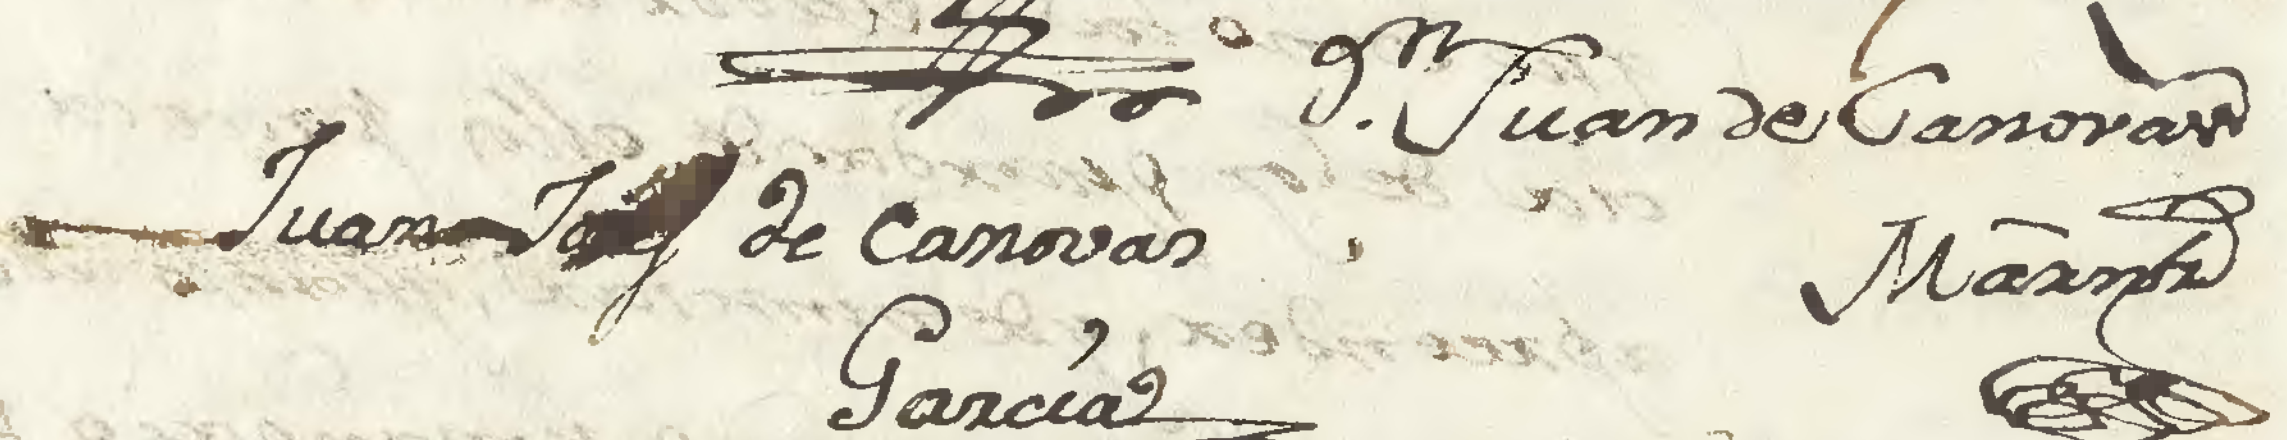 Dn. Juan de Canovas
Juan Josef de Canovas
García